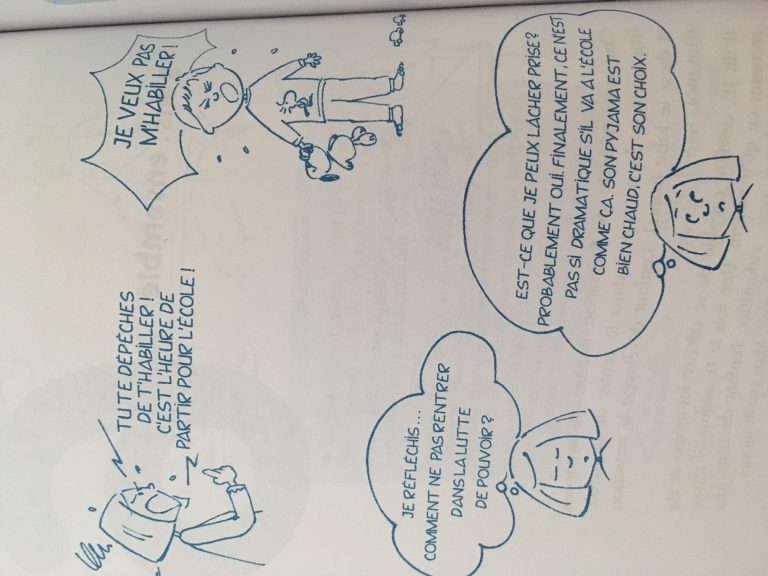 TU TE DÉPÊCHES
DE T'HABILLER !
C'EST L'HEURE DE
PARTIR POUR L'ÉCOLE !
JE VEUX PAS
M'HABILLER !
JE RÉFLÉCHIS....
COMMENT NE PAS RENTRER
DANS LA LUTTE
DE POUVOIR ?
EST-CE QUE JE PEUX LÂCHER PRISE ?
PROBABLEMENT OUI. FINALEMENT, CE N'EST
PAS SI DRAMATIQUE S'IL VA A L'ÉCOLE
COMME ÇA. SON PYJAMA EST
BIEN CHAUD, C'EST SON CHOIX.